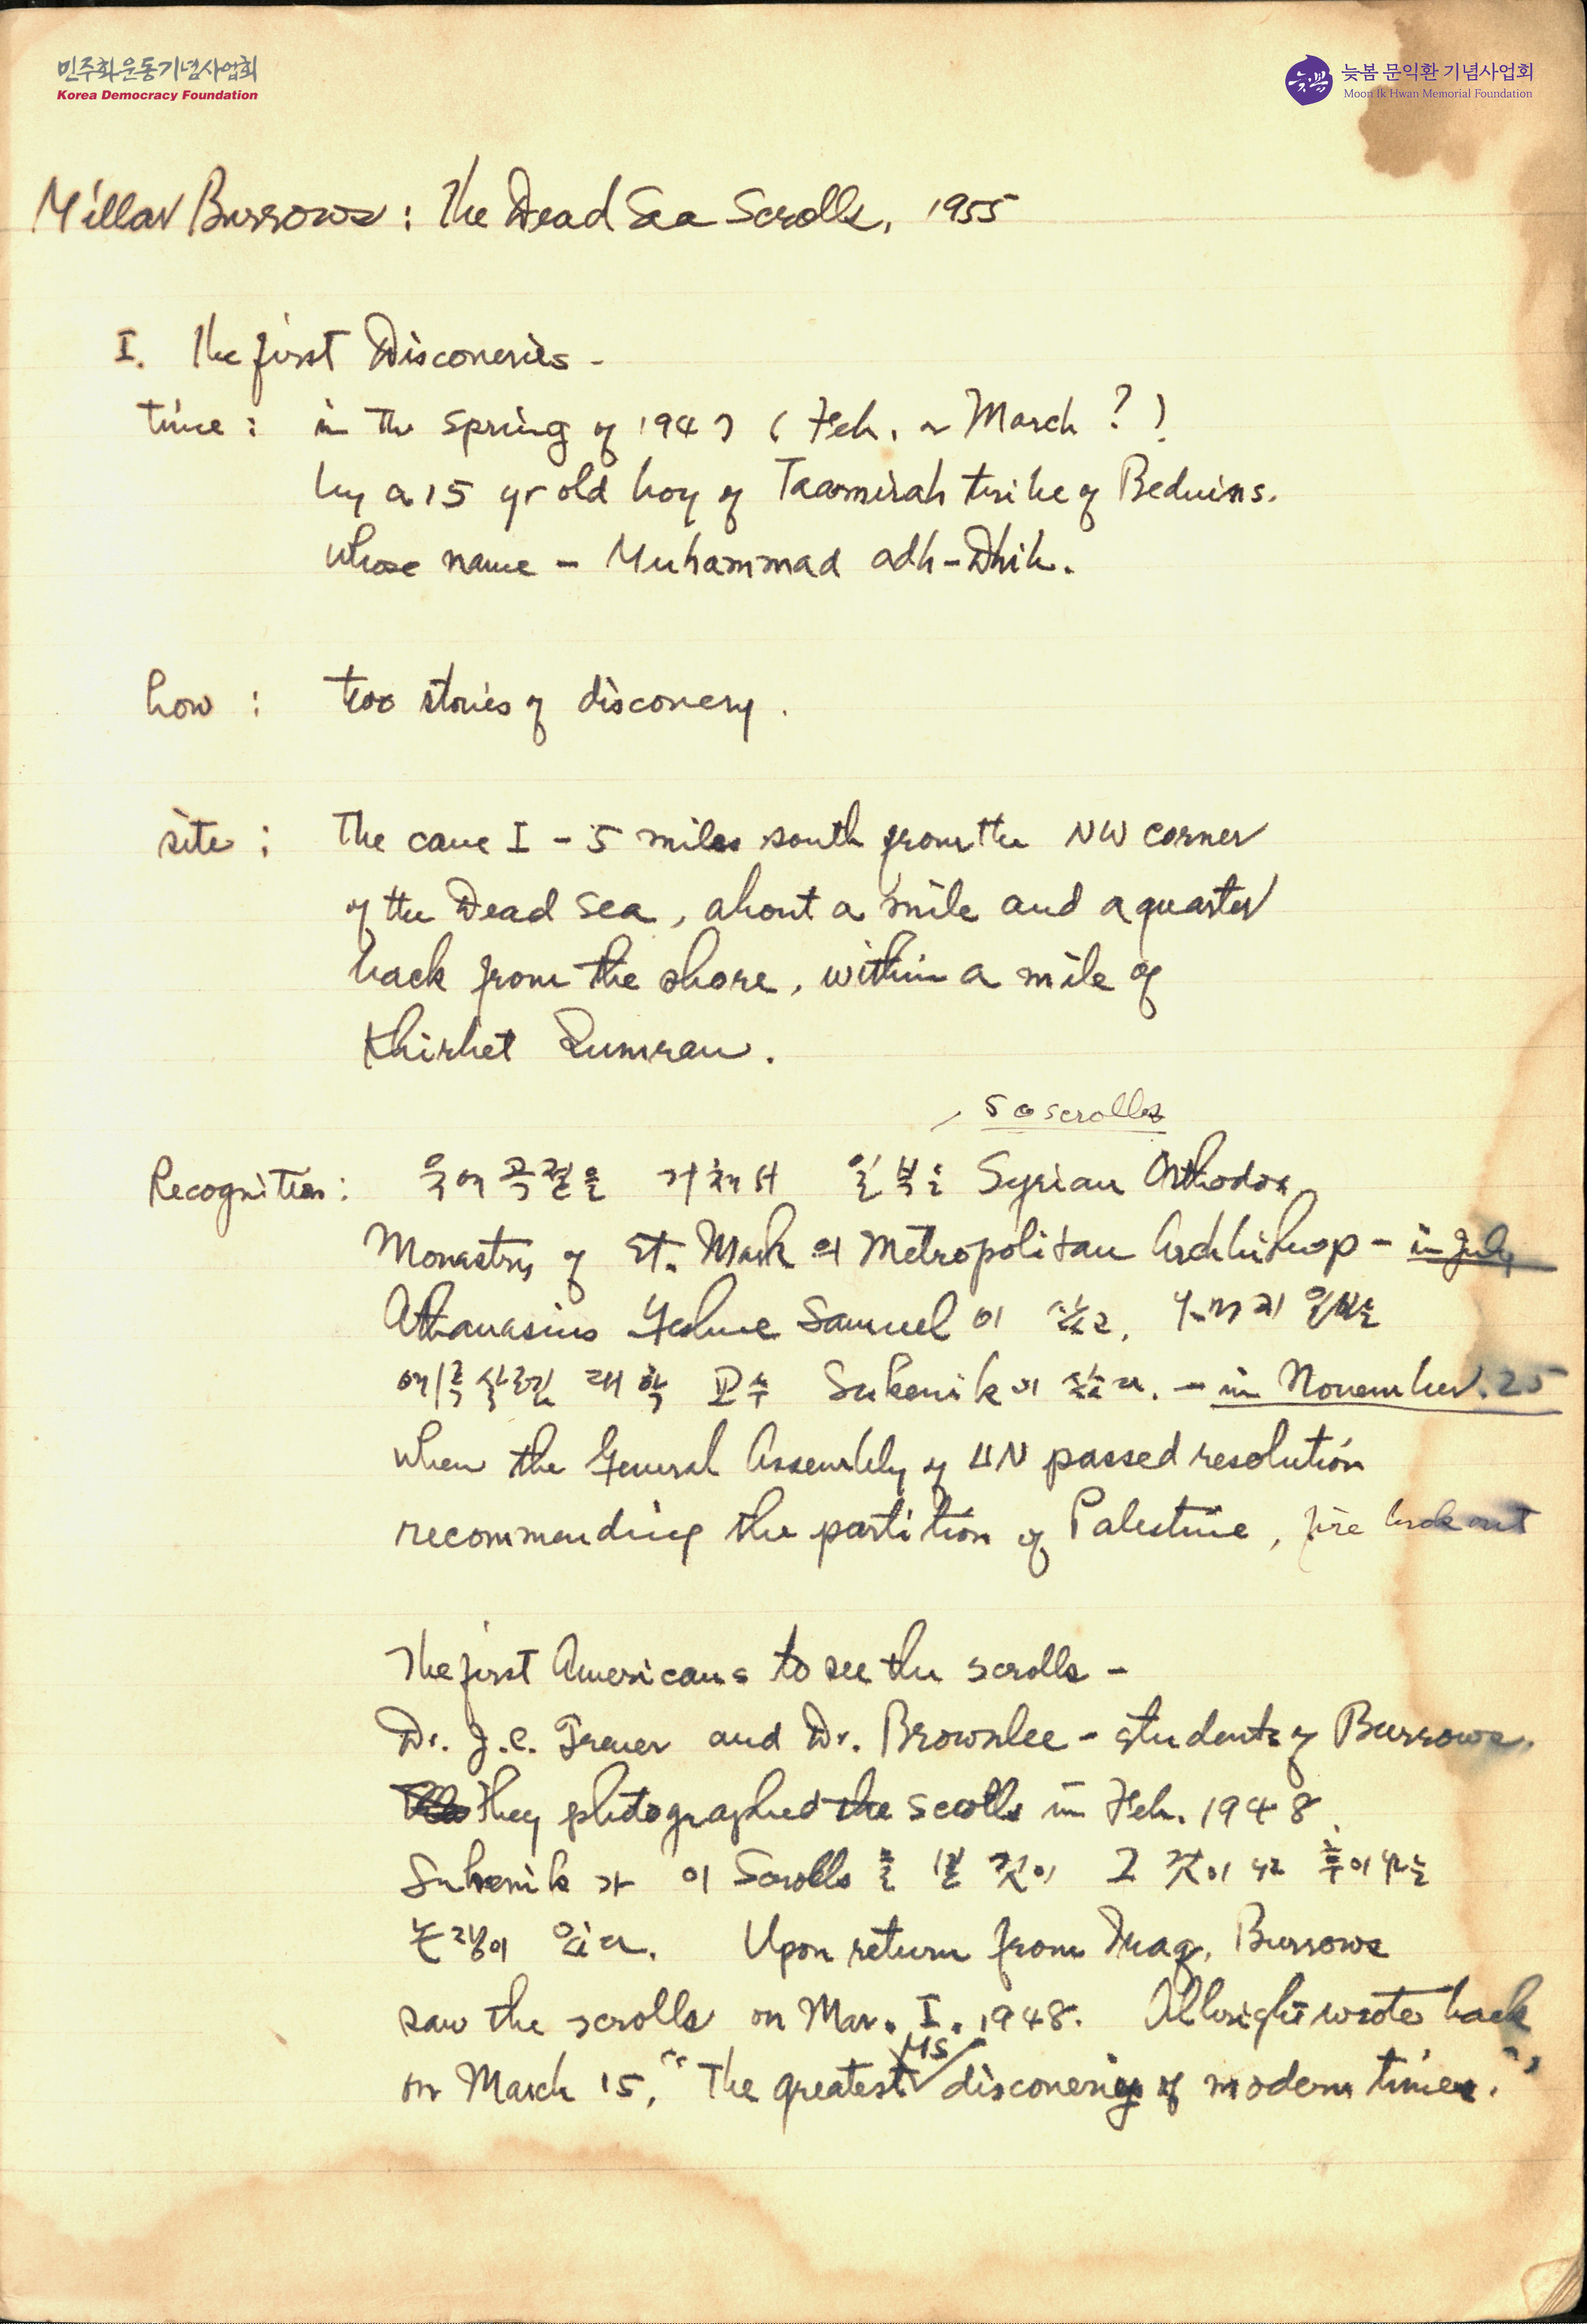 민주화운동기념사업회
Korea Democracy Foundation
늦봄 문익환 기념사업회
Moon Ik Hwan Memorial Foundation
Millar Burrows : The Dead Sea Scrolls, 1955
I. The first Discoveries -
time : in the spring of 1947 ( Feb. or March ? )
by a 15 yr old boy of Taamirah tribe of Beduins.
whose name - Muhammad adh-Dhib.
how : two stories of discovery.
site : The cave I - 5 miles south from the NW corner
of the Dead Sea, about a mile and a quarter
back from the shore, within a mile of
Khirbet Qumran.
5 scrolls
Recognition : 곡절을 거쳐서 일부는 Syrian Orthodox
Monastry of St. Mark의 Metropolitan Archbishop - in July
Athanasius Yeshue Samuel이 샀고, 나머지 일부는
예루살렘 대학 교수 Sukenik이 샀다. - in November. 25
when the General Assembly of UN passed resolution
recommending the partition of Palestine, fire broke out
The first Americans to see the scrolls -
Dr. J.C. Trever and Dr. Brownlee - students of Burrows.
They photographed the scolls in Feb. 1948.
Sukenik가 이 Scrolls를 본 것이 그 것이냐 후이냐는
논쟁이 있다. Upon return from Iraq, Burrows
saw the scrolls on Mar. I. 1948. Albright wrote back
on March 15, "The greatest MS discovery of modern times."